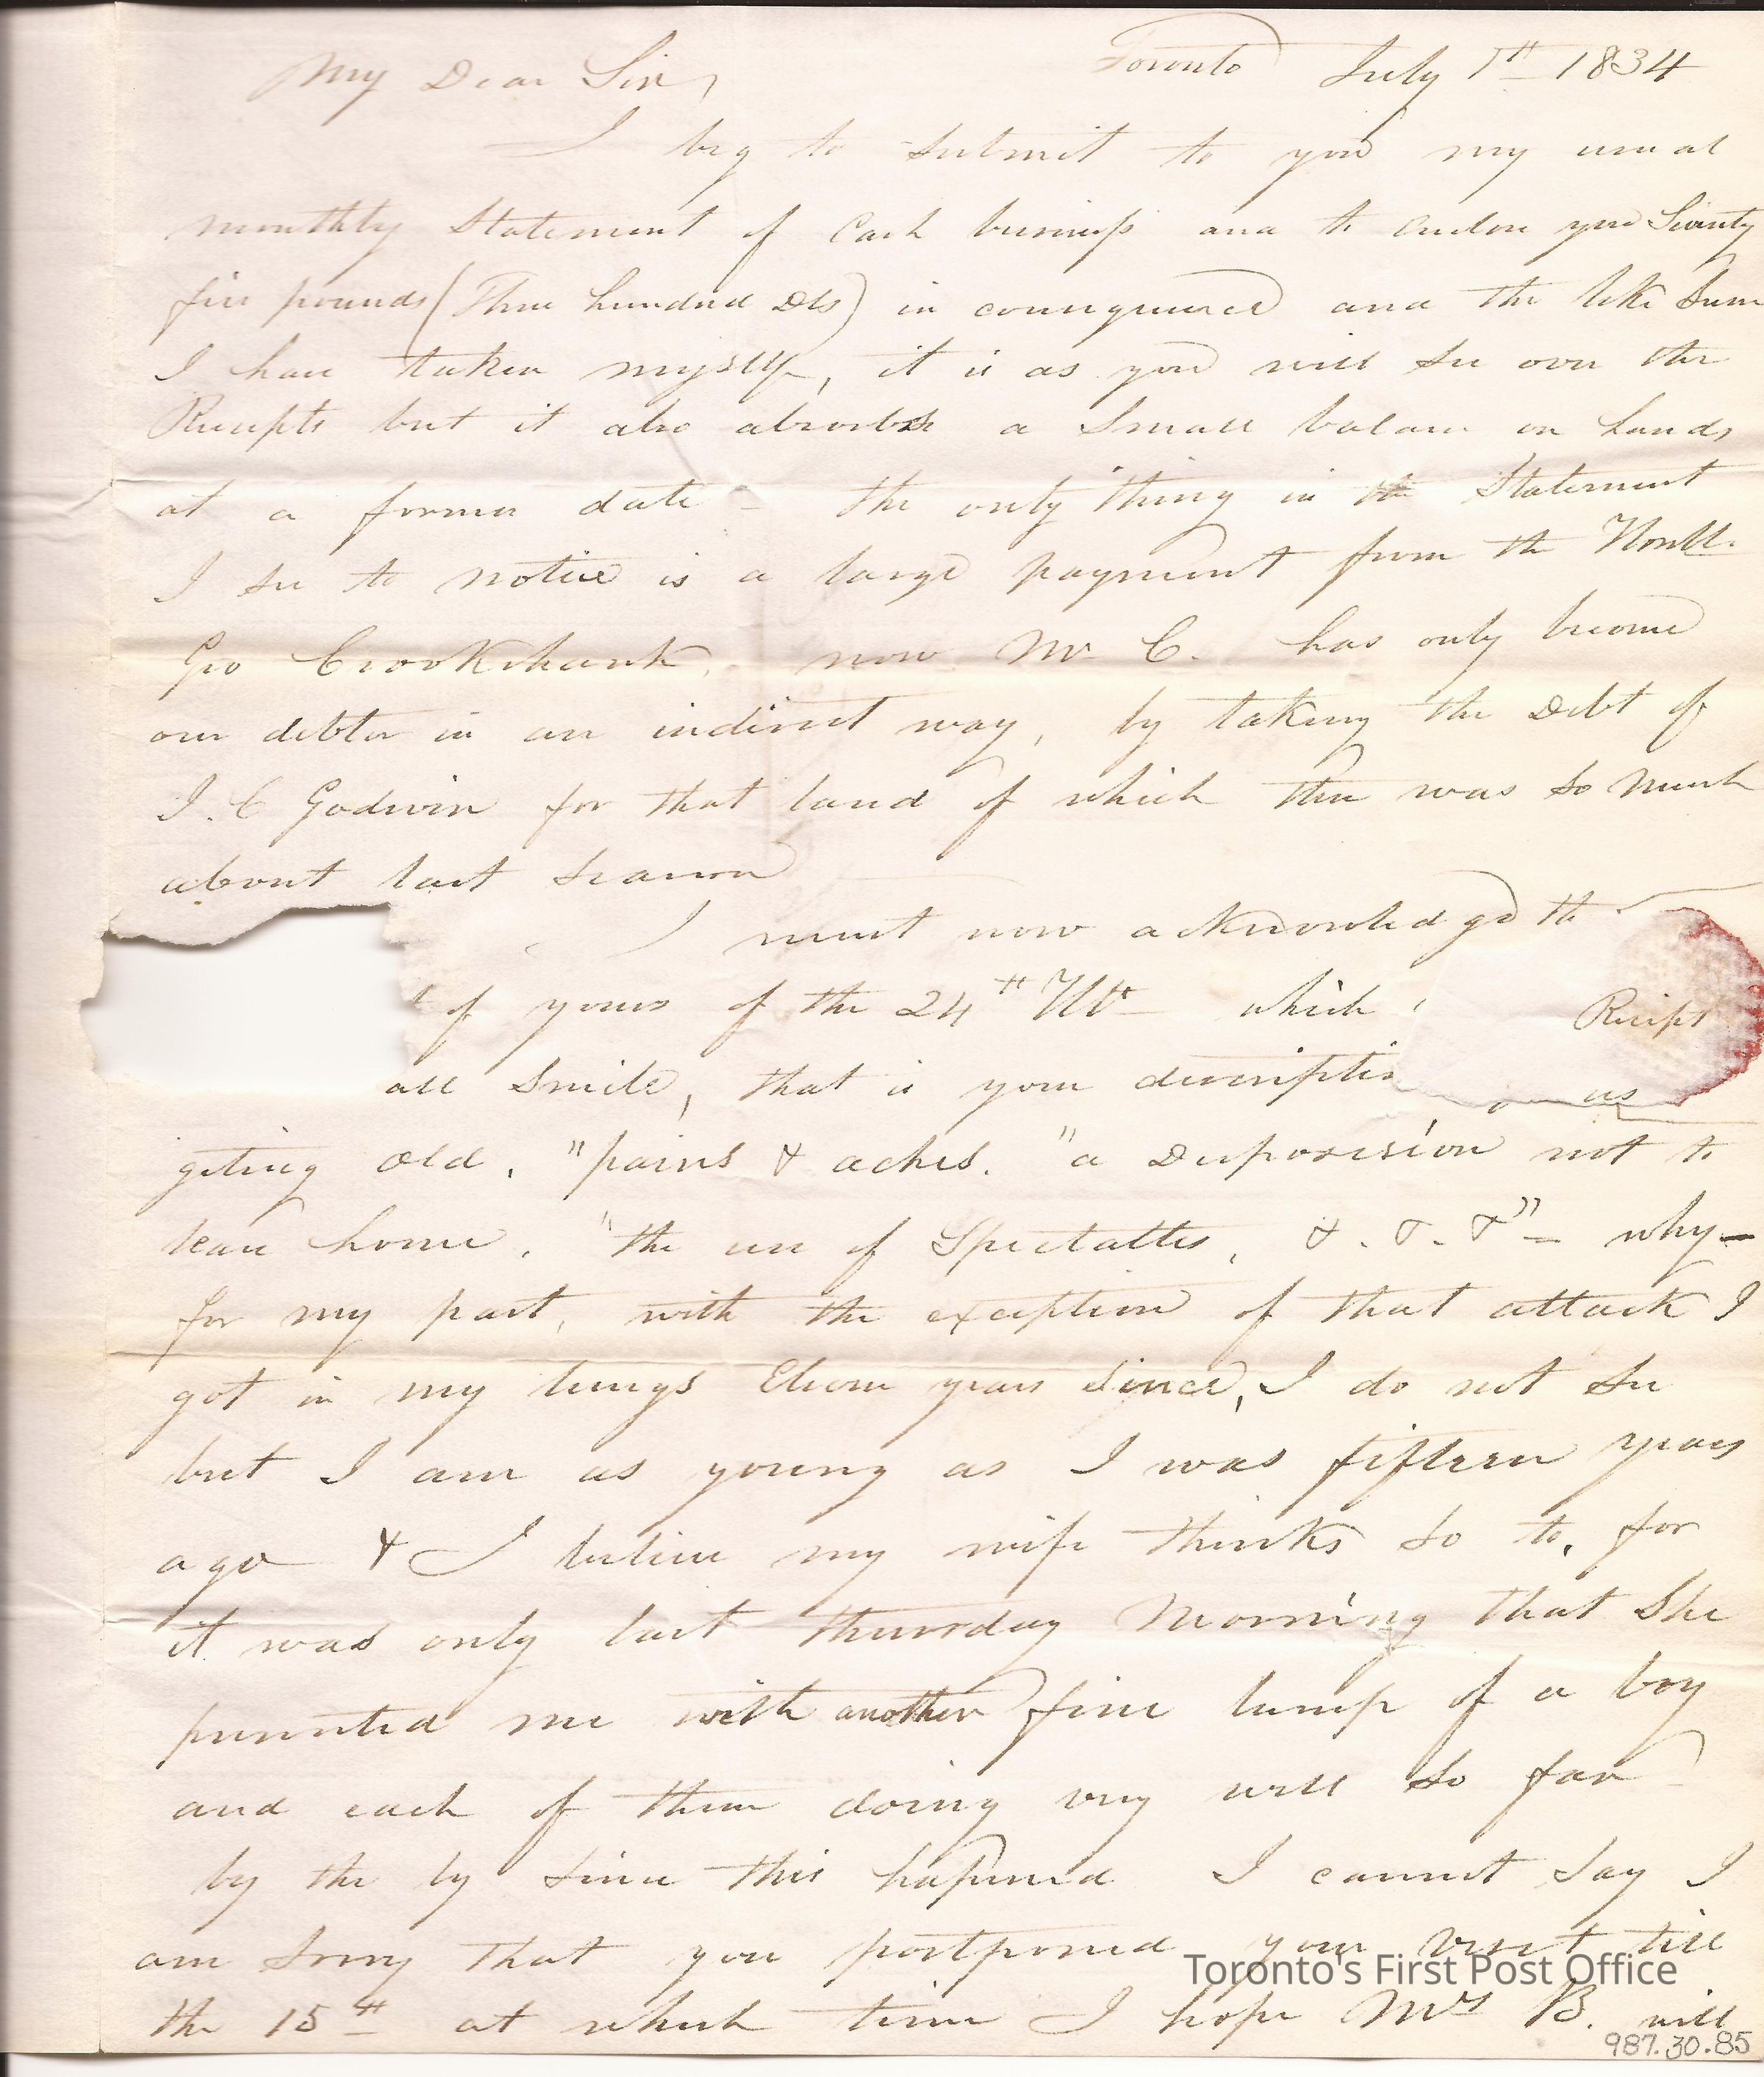 Toronto July 1st 1834
My Dear Sir,
I beg to submit to you my usual
monthly Statement of Cash business and to enclose you Seventy
five pounds (Three hundred Dls) in consequence and the like Sum
I have taken myself, it is as you will see over the
Receipts but it also absorbs a Small balance on hands
at a former date - the only thing in the Statement
I see to notice is a large payment from the Honbl.
Geo Crookshank, now Mr C. has only become
our debtor in an indirect way, by taking the Debt of
I. C Godwin for that land of which there was so much
about last season
I must now acknowledge the
of yours of the 24th Ult which
Receipt
all Smile, that is your descriptio
as
geting old, "pains & aches. "a Disposision not to
leave home, "the use of Spectattes, &. &. &" = why —
for my part, with the exception of that attack I
got in my lungs Eleven years Since, I do not see
but I am as young as I was fifteen years
ago & I believe my wife thinks so to, for
it was only last thursday Morning that She
presented me with another fine lump of a boy
and each of them doing very well so far
by the by Since this hapened I cannot Say I
am Sorry that you postponed your visit till
the 15th at which time I hope Mrs B. will
Toronto's First Post Office
987.30.85